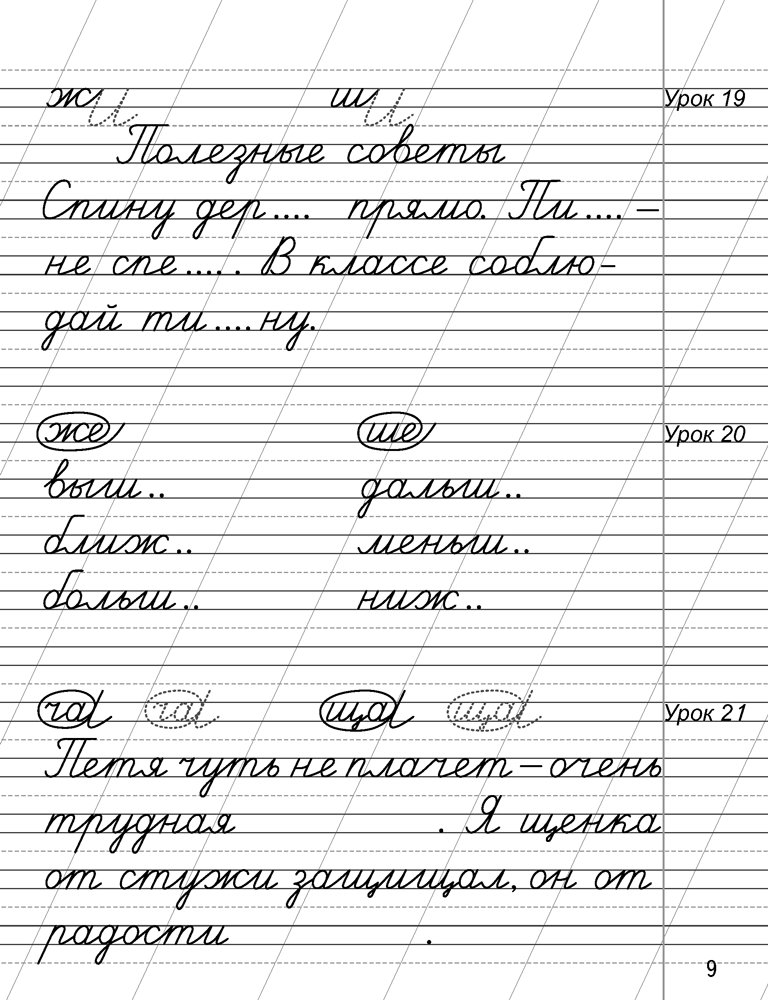 жи ши Урок 19
Полезные советы
Спину дер.... прямо. Пи.... –
не спе..... В классе соблю-
дай ти....ну.
же ше Урок 20
выш.. дальш..
ближ.. меньш..
больш.. ниж..
ча ча ща ща Урок 21
Петя чуть не плачет – очень
трудная . Я щенка
от стужи защищал, он от
радости .
9